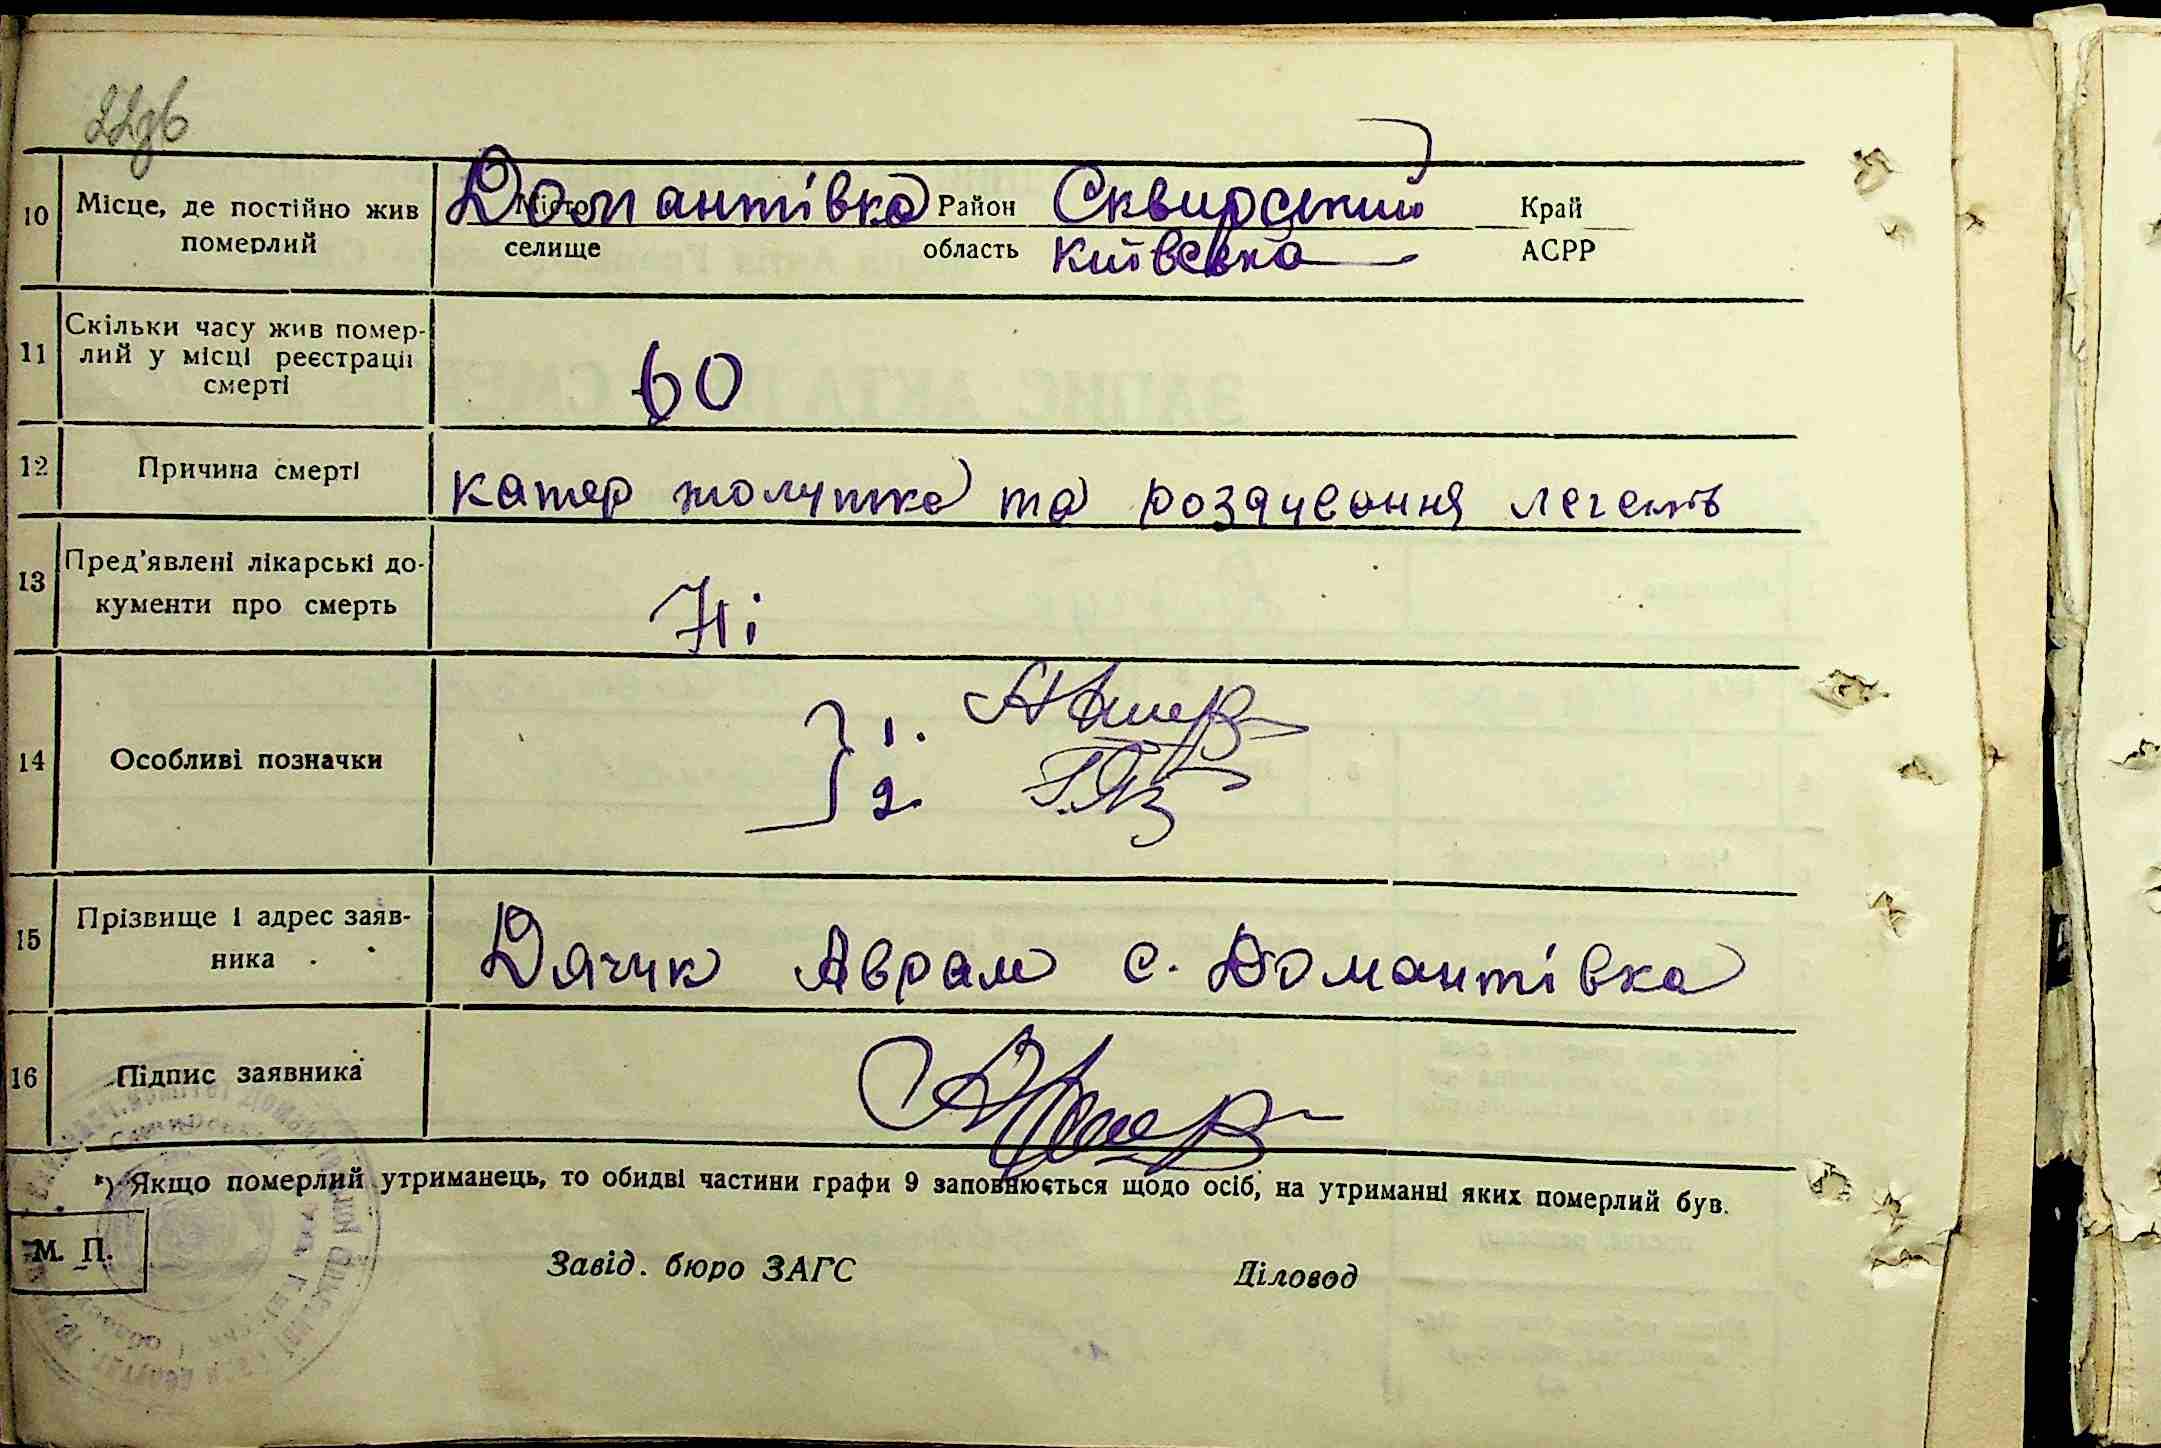 22зв
10 Місце, де постійно жив Домантівка Місто Район Сквирський Край
померлий селище область Київська АСРР
11 Скільки часу жив помер-
лий у місці реєстрації 60
смерті
12 Причина смерті катар жолутка та роздученния легенів
13 Пред'явлені лікарські до-
кументи про смерть Ні
14 Особливі позначки 1.
2.
15 Прізвище і адрес заяв-
ника Дячук Аврам с. Домантівка
16 Підпис заявника
*) Якщо померлий утриманець, то обидві частини графи 9 заповнюється щодо осіб, на утриманні яких померлий був.
М. П.
Завід. бюро ЗАГС Діловод